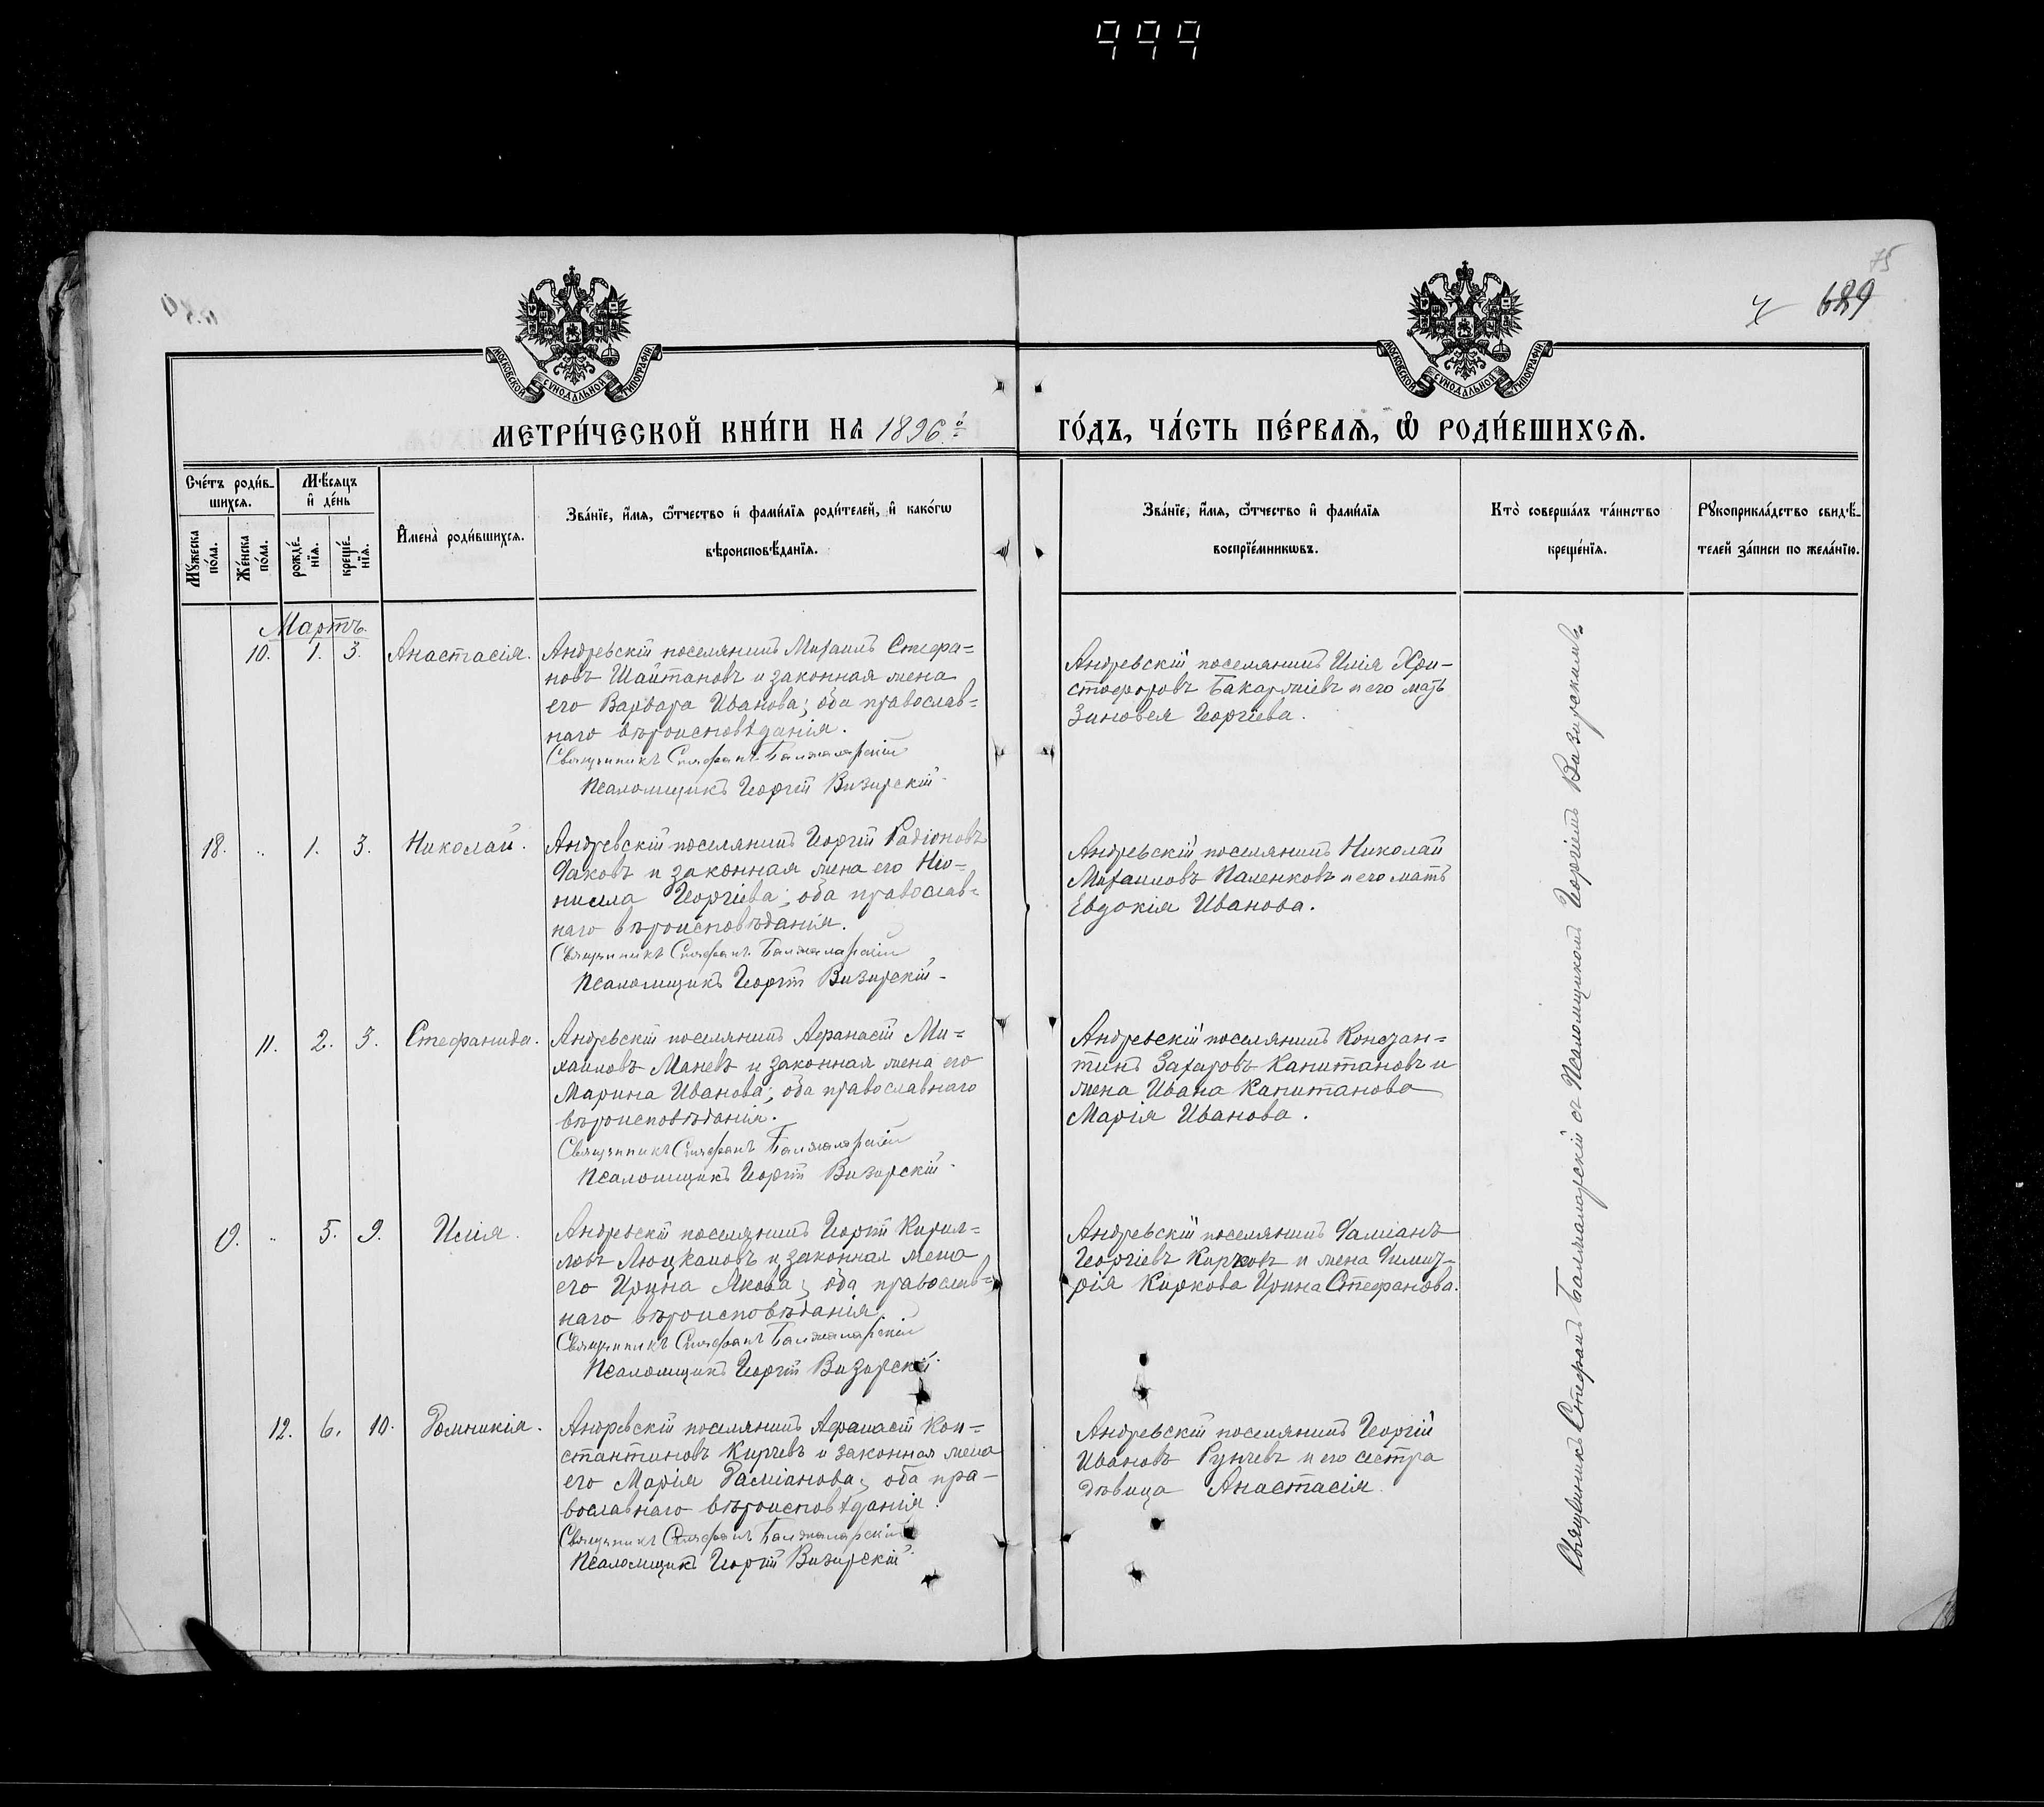 999
75
689
МОСКОВСКОЙ СѴНОДАЛЬНОЙ ТИПОГРАФІИ
МОСКОВСКОЙ СѴНОДАЛЬНОЙ ТИПОГРАФІИ
МЕТРИ́ЧЕСКОЙ КНИ́ГИ НА 1896.й
ГО́ДЪ, ЧА́СТЬ ПЕ́РВАѦ, Ѡ҆ РОДИ́ВШИХСѦ.
Сче́тъ роди́в-
шихсѧ.
Мѣ́сѧцъ
и҆ де́нь
Мꙋ́жеска
по́ла.
Же́нска
по́ла.
рожде́-
нїѧ.
креще́-
нїѧ.
И҆мена̀ роди́вшихсѧ.
Зва́нїе, и҆́мѧ, ѻ҆́тчество и҆ фами́лїѧ роди́телей, и҆ како́гѡ
вѣроисповѣ́данїѧ.
Зва́нїе, и҆́мѧ, ѻ҆́тчество и҆ фами́лїѧ
воспрїе́мникѡвъ.
Кто̀ соверша́лъ та́инство
креще́нїѧ.
Рꙋкоприкла́дство свидѣ́-
телей за́писи по жела́нїю.
Мартъ.
10. 1. 3. Анастасія.
Андревскій поселянинъ Михаилъ Стефа=
новъ Шайтановъ и законная жена
его Варвара Иванова; оба православ=
наго вѣроисповѣданія.
Священникъ Стефанъ Балжаларскій
Псаломщикъ Георгій Визирскій
Андревскій поселянинъ Илія Хри-
стофоровъ Бакаржіевъ и его мать
Зиновея Георгіева.
18. „ 1. 3. Николай.
Андревскій поселянинъ Георгій Радіоновъ
Даковъ и законная жена его Нео-
нилла Георгіева; оба православ=
наго вѣроисповѣданія.
Священникъ Стефанъ Балжаларскій
Псаломщикъ Георгій Визирскій
Андревскій поселянинъ Николай
Михаиловъ Паленковъ и его мать
Евдокія Иванова.
11. 2. 3. Стефанида.
Андревскій поселянинъ Афанасій Ми=
хаиловъ Маневъ и законная жена его
Марина Иванова; оба православнаго
вѣроисповѣданія.
Священникъ Стефанъ Балжаларскій
Псаломщикъ Георгій Визирскій
Андревскій поселянинъ Констан=
тинъ Захаровъ Капитановъ и
жена Ивана Капитанова
Марія Иванова.
19. „ 5. 9. Илія.
Андревскій поселянинъ Георгій Кирил=
ловъ Люцкановъ и законная жена
его Ирина Якова; оба православ=
наго вѣроисповѣданія.
Священникъ Стефанъ Балжаларскій
Псаломщикъ Георгій Визирскій
Андревскій поселянинъ Даміанъ
Георгіевъ Кирковъ и жена Димит-
рія Киркова Ирина Стефанова.
12. 6. 10. Домникія.
Андревскій поселянинъ Афанасій Кон=
стантиновъ Кирчевъ и законная жена
его Марія Даміанова; оба пра-
вославнаго вѣроисповѣданія.
Священникъ Стефанъ Балжаларскій
Псаломщикъ Георгій Визирскій
Андревскій поселянинъ Георгій
Ивановъ Рунчевъ и его сестра
дѣвица Анастасія.
Священникъ Стефанъ Балжаларскій съ Псаломщикомъ Георгіемъ Визирскимъ.